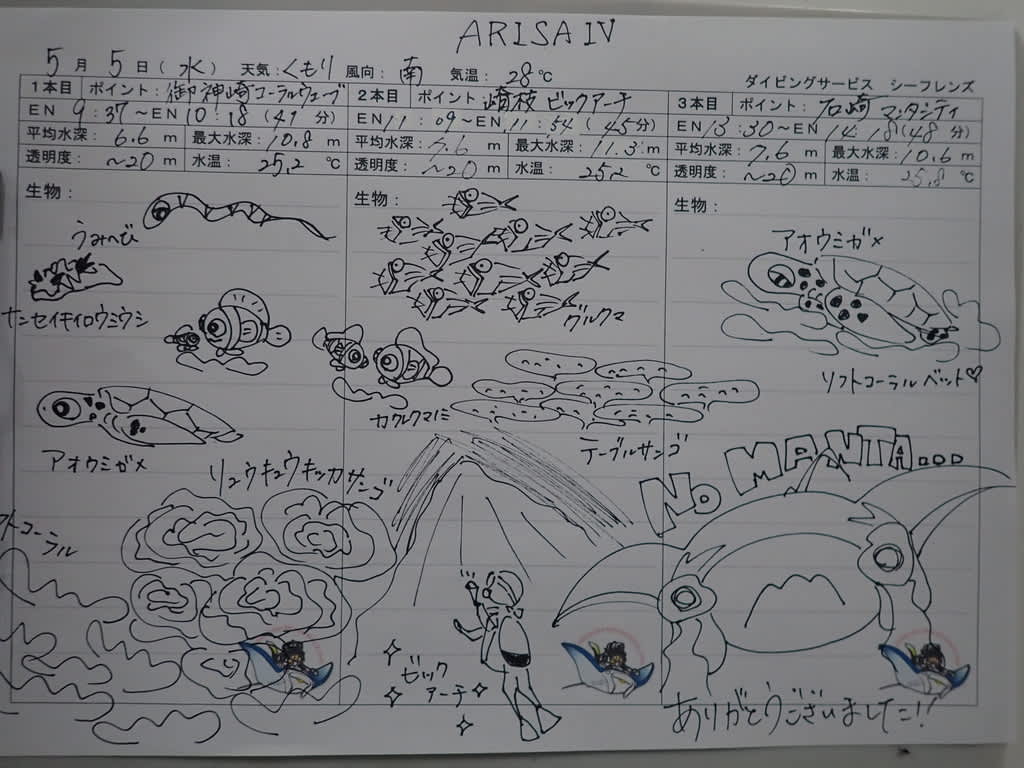 ARISA IV
5月 5日(水) 天気:くもり 風向:南 気温:28℃
ダイビングサービス シーフレンズ
1本目 ポイント:御神崎コーラルウェーブ
EN 9:37～EN 10:18(41分)
平均水深:6.6m 最大水深:10.8m
透明度:～20m 水温:25.2℃
生物:
うみへび
センセイキイロウミウシ
アオウミガメ
リュウキュウキッカサンゴ
フトコーラル
2本目 ポイント:崎枝 ビックアーチ
EN 11:09～EN 11:54(45分)
平均水深:7.6m 最大水深:11.3m
透明度:～20m 水温:25.2℃
生物:
グルクマ
カクレクマノミ
テーブルサンゴ
ビック
アーチ
3本目 ポイント:石崎 マンタシティ
EN 13:30～EN 14:18(48分)
平均水深:7.6m 最大水深:10.6m
透明度:～20m 水温:25.8℃
生物:
アオウミガメ
ソフトコーラルベット♡
NO MANTA...
ありがとうございました!!